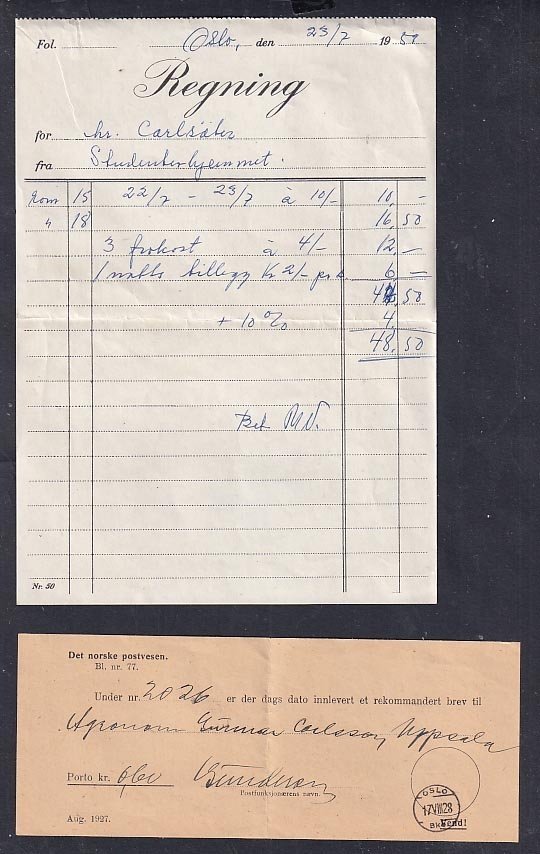 Fol. Oslo, den 23/7 1950
Regning
for hr. Carlsäter
fra Studenterhjemmet.
Rom 15 22/7 - 23/7 à 10/- 10, -
" 18 16, 50
3 frokost à 4/- 12, -
1 natts billegg Kr 2/- pr. 6, -
44, 50
+ 10% 4,
48, 50
Bet
Nr. 50
Det norske postvesen.
Bl. nr. 77.
Under nr. 2026 er der dags dato innlevert et rekommandert brev til
Agronom Gunnar Carlsson, Uppsala
Porto kr. 0,60 Gundersen
Postfunksjonærens navn.
OSLO
17VIII28
Vend!
Aug. 1927.